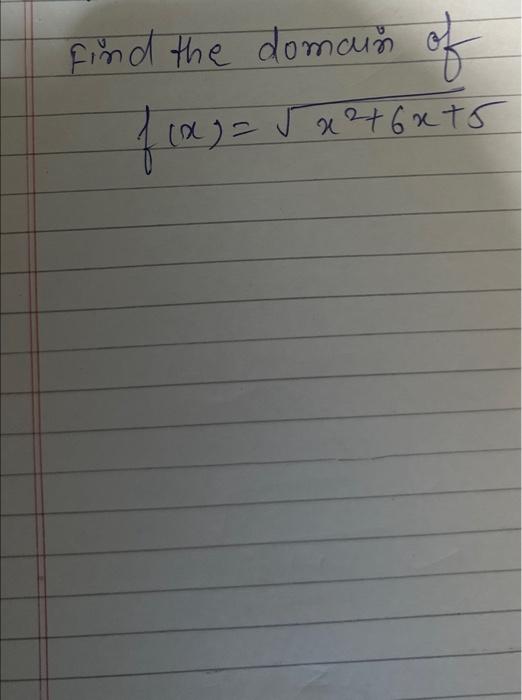 Find the domain of
f(x) = √x²+6x+5